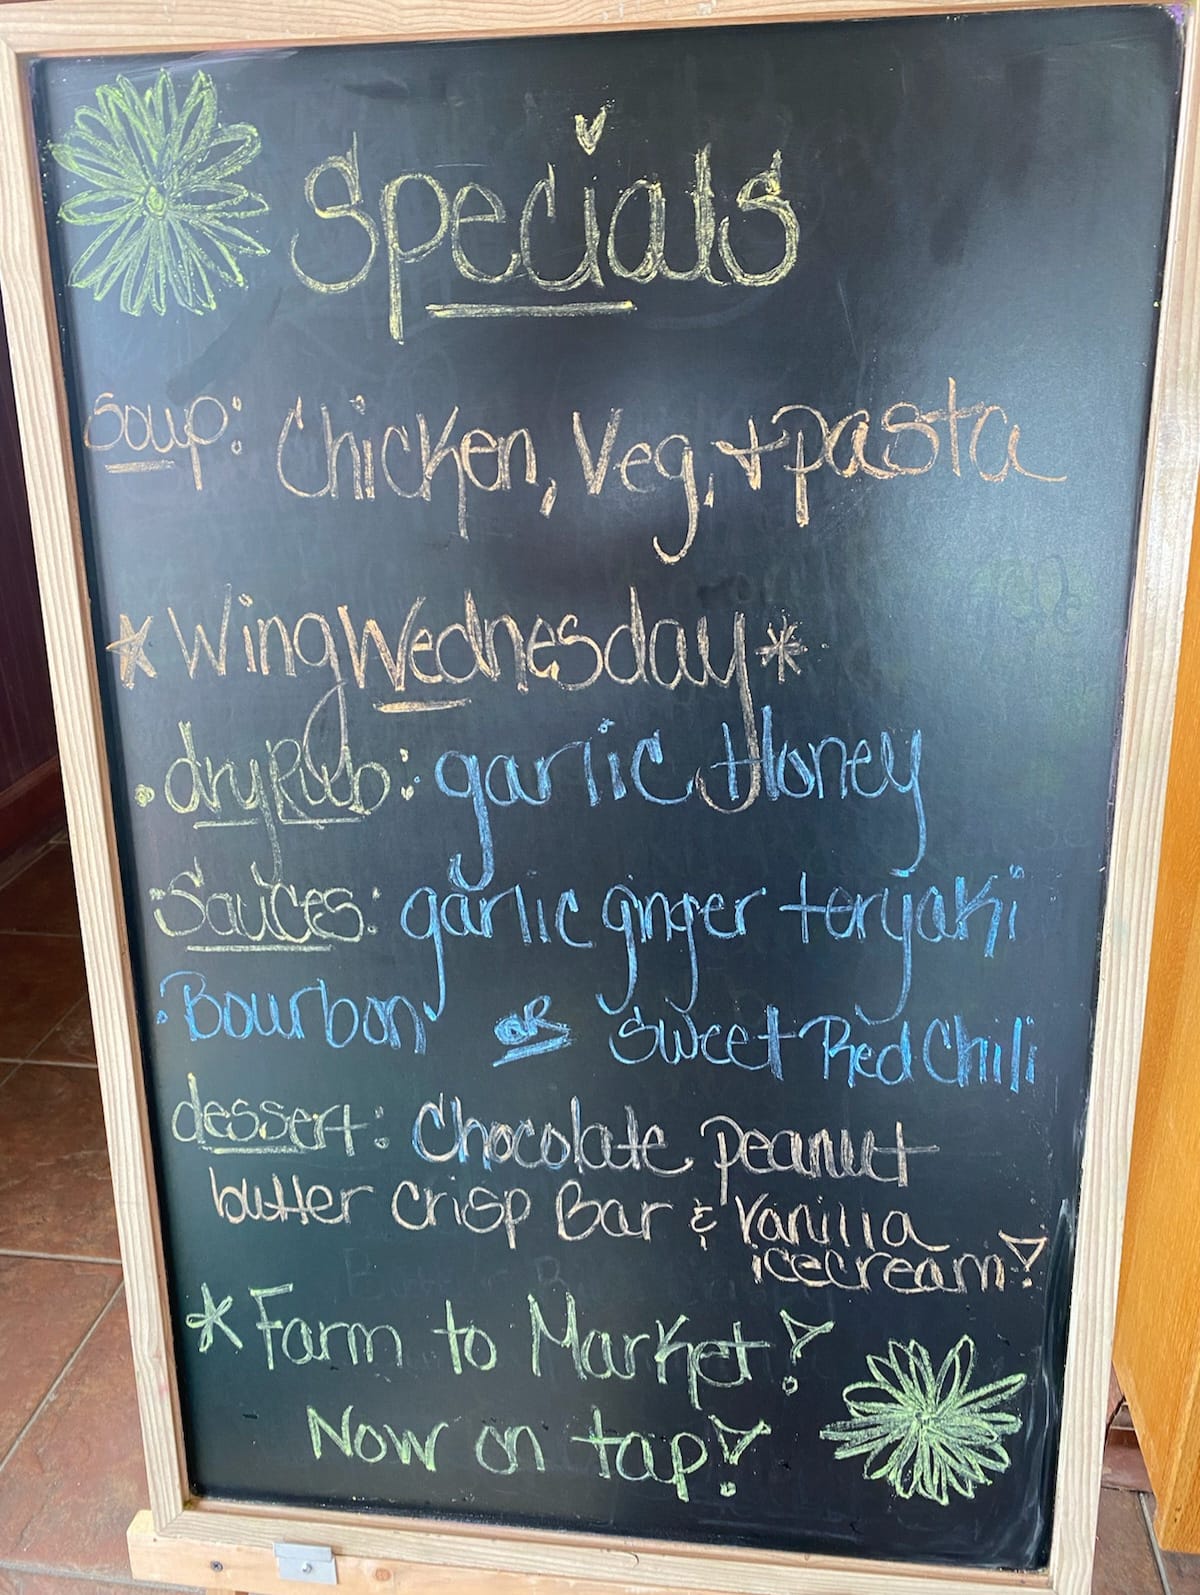 Specials
Soup: Chicken, Veg, + pasta
*Wing Wednesday*
• dry Rub: garlic Honey
• Sauces: garlic ginger teryaki
• Bourbon OR Sweet Red Chili
dessert: Chocolate peanut
butter crisp Bar & Vanilla
icecream!
* Farm to Market!
Now on tap!